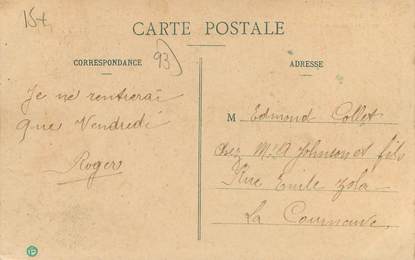 15+
CARTE POSTALE
CORRESPONDANCE
93
ADRESSE
Je ne rentrerai
que Vendredi
Roger
M Edmond Collet
chez Mr A Johnson et fils
Rue Emile Zola
La Courneuve